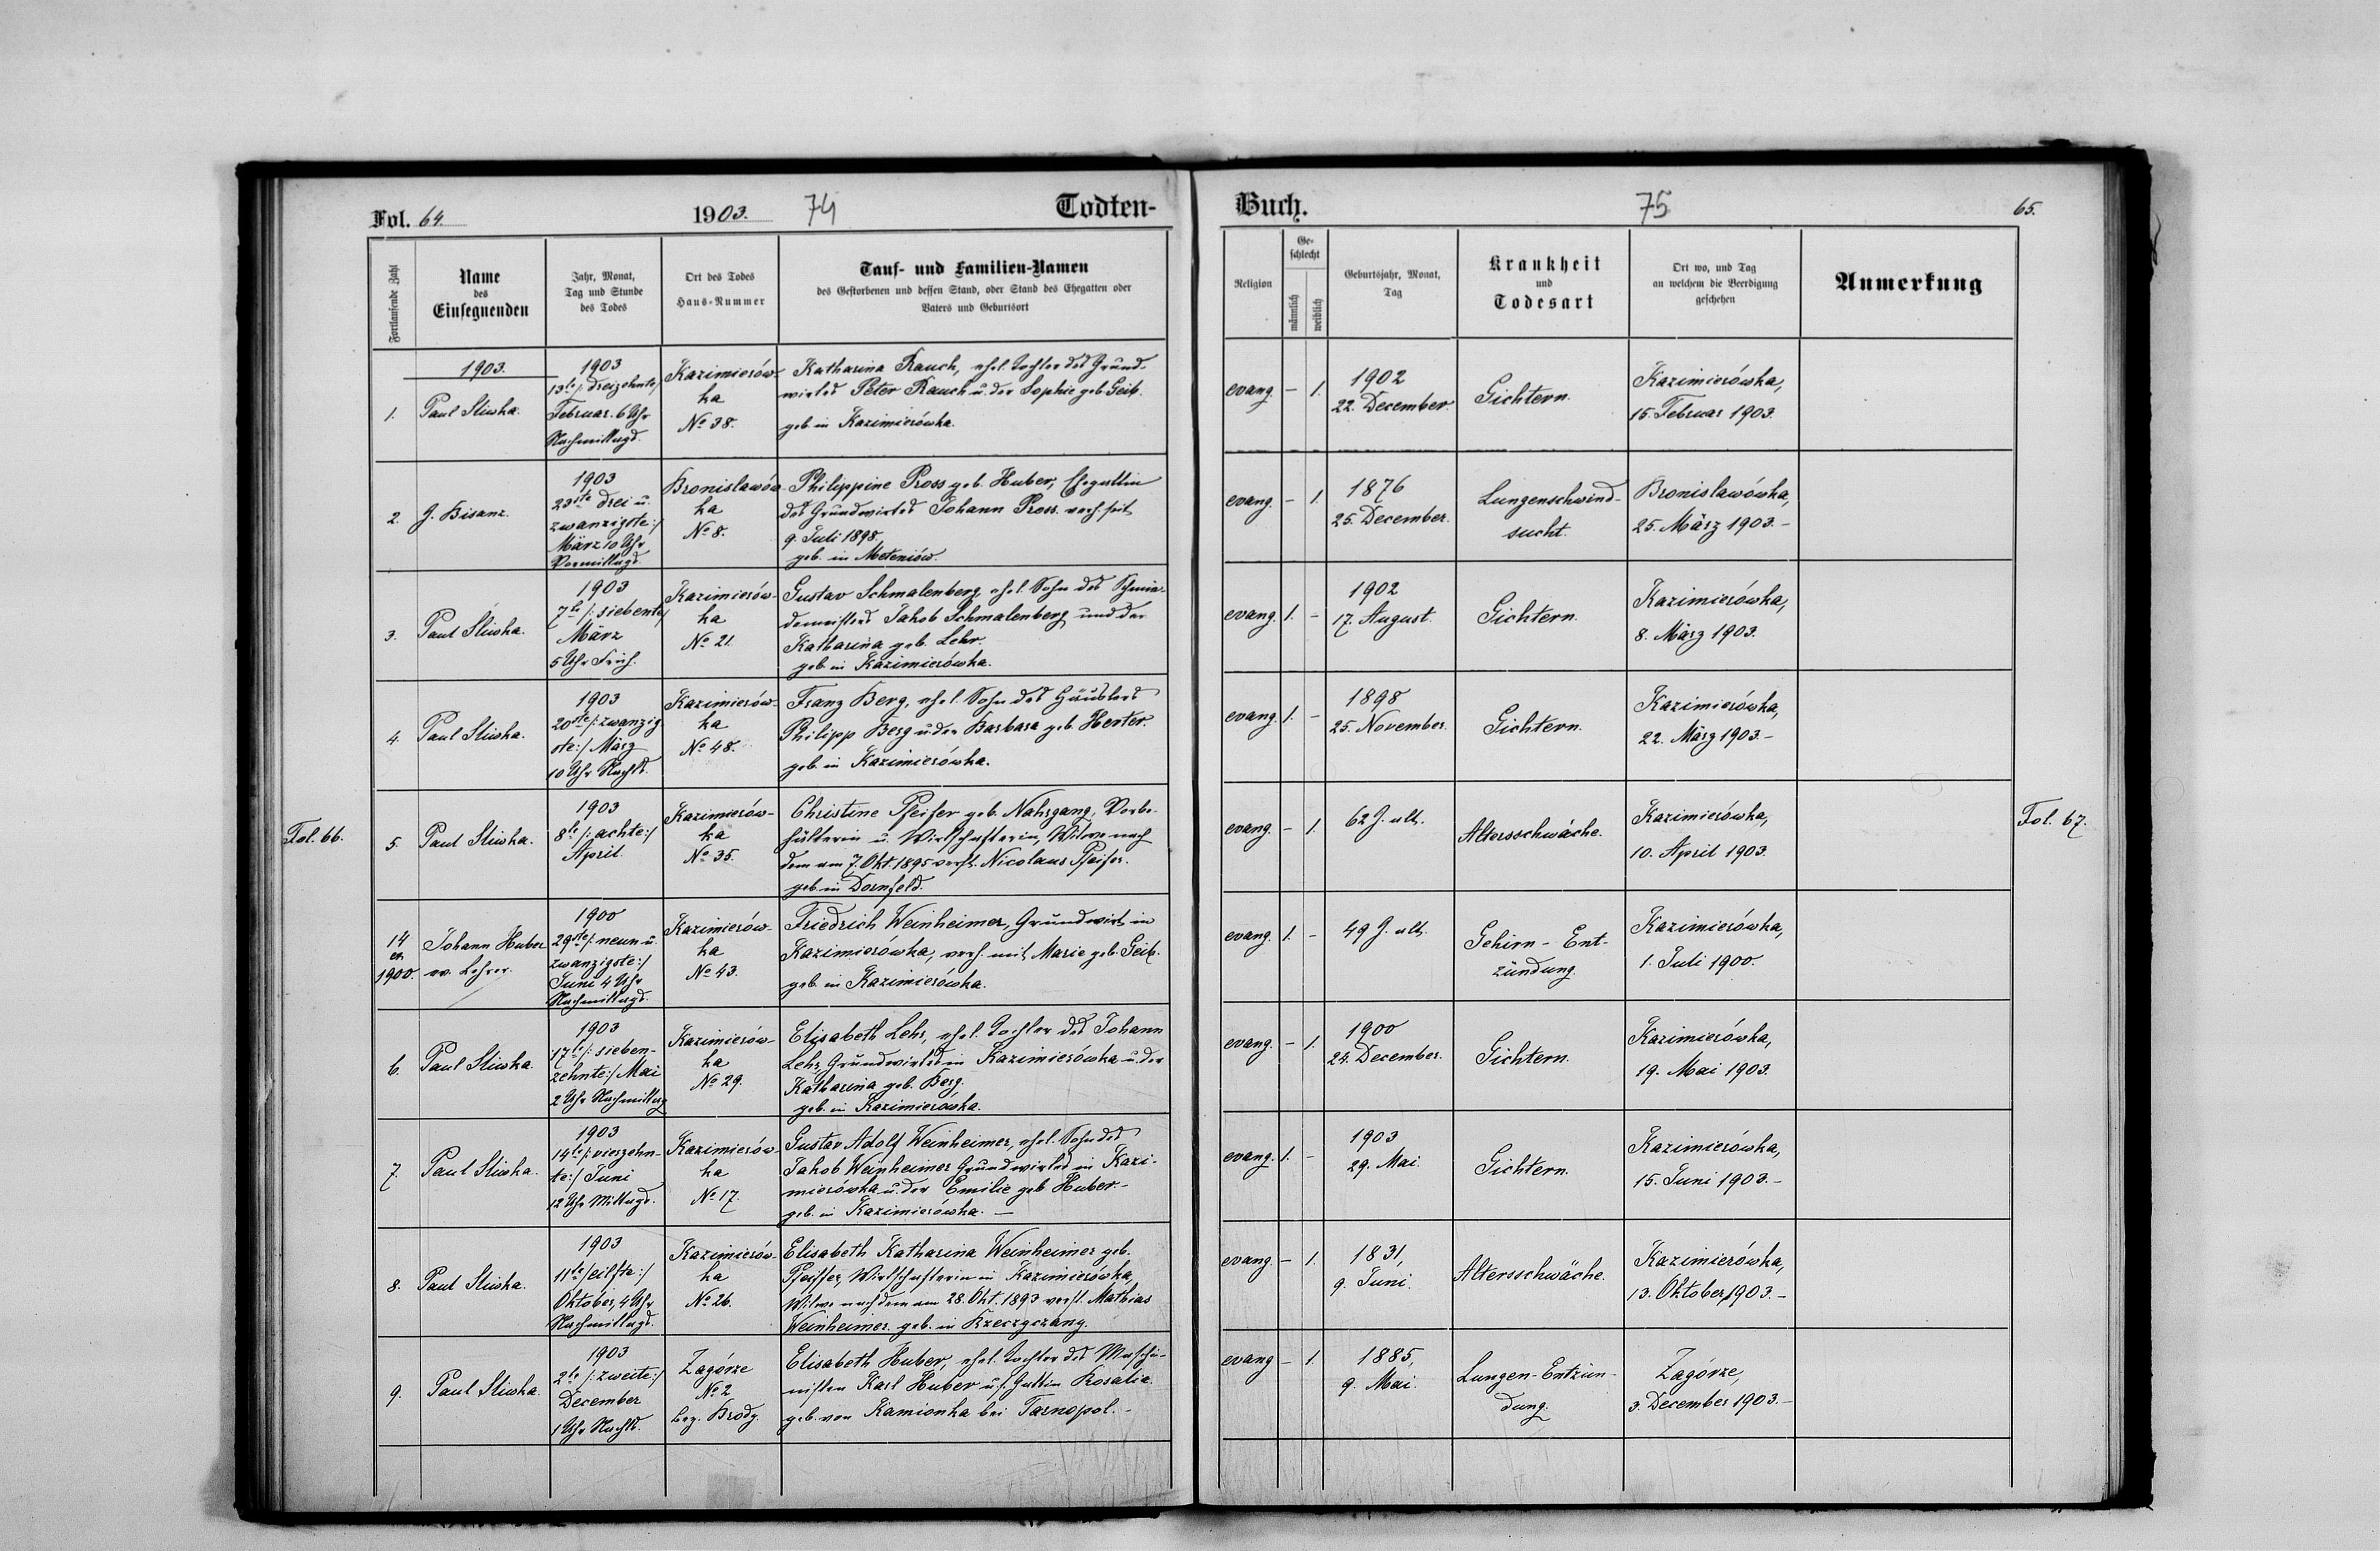 Fol. 64.
1903.
74
Todten-
Fortlaufende Zahl
Name
des
Einsegnenden
Jahr, Monat,
Tag und Stunde
des Todes
Ort des Todes
Haus-Nummer
Tauf- und Familien-Namen
des Gestorbenen und dessen Stand, oder Stand des Ehegatten oder
Vaters und Geburtsort
1903.
1.
Paul Sliwka.
1903
13te /: dreizehnte/
Februar. 6 Uhr
Nachmittags.
Kazimierów-
ka
No 38.
Katharina Rauch, ehel. Tochter des Grund-
wirtes Peter Rauch u. der Sophie geb. Geib.
geb in Kazimierówka.
2.
J. Bisanz.
1903
23ste drei u.
zwanzigste:/
März 10 Uhr
Vormittags.
Bronislawów-
ka
No 8.
Philippine Pross geb. Huber, Ehegattin
des Grundwirtes Johann Pross. verh. seit
9. Juli 1898,
geb. in Meteniów.
3.
Paul Sliwka.
1903
7te /: siebente/
März
5 Uhr Früh.
Kazimierów-
ka
No 21.
Gustav Schmalenberg, ehel. Sohn des Schmie-
demeisters Jakob Schmalenberg und der
Katharina geb. Lehr.
geb. in Kazimierówka.
4.
Paul Sliwka.
1903
20ste /: zwanzig
ste:/ März
10 Uhr Nachts.
Kazimierów-
ka
No 48.
Franz Berg, ehel. Sohn des Häuslers
Philipp Berg u. der Barbara geb. Herter.
geb. in Kazimierówka.
Fol. 66.
5.
Paul Sliwka.
1903
8te /: achte:/
April.
Kazimierów-
ka
No 35.
Christine Pfeifer geb. Nahrgang, Vorbe-
hälterin u. Wirtschafterin, Witwe nach
dem am 7. Okt. 1895 verst. Nicolaus Pfeifer.
geb. in Dornfeld.
14
ex
1900.
Johann Huber
ev. Lehrer.
1900
29ste /: neun u.
zwanzigste:/
Juni 4 Uhr
Nachmittags.
Kazimierów-
ka
No 43.
Friedrich Weinheimer, Grundwirt in
Kazimierówka, verh. mit Marie geb. Geib.
geb. in Kazimierówka.
6.
Paul Sliwka.
1903
17te /: sieben-
zehnte:/ Mai
2 Uhr Nachmittag
Kazimierów-
ka
No 29.
Elisabeth Lehr, ehel. Tochter des Johann
Lehr, Grundwirtes in Kazimierówka u. der
Katharina geb. Berg.
geb. in Kazimierówka.
7.
Paul Sliwka.
1903
14te /: vierzehn-
te:/ Juni
12 Uhr Mittags.
Kazimierów-
ka
No 17.
Gustav Adolf Weinheimer, ehel. Sohn des
Jakob Weinheimer Grundwirtes in Kazi-
mierówka u. der Emilie geb Huber.-
geb. in Kazimierówka. —
8.
Paul Sliwka.
1903
11te /eilfte:/
Oktober, 4 Uhr
Nachmittags.
Kazimierów-
ka
No 26.
Elisabeth Katharina Weinheimer geb.
Pfeiffer, Wirtschafterin in Kazimierówka,
Witwe nach dem am 28. Okt. 1893 verst. Mathias
Weinheimer. geb. in
9.
Paul Sliwka.
1903
2te /: zweite:/
December
1 Uhr Nachts.
Zagórze
No 2
bez. Brody.
Elisabeth Huber, ehel. Tochter des Maschi-
nisten Karl Huber u. s. Gattin Rosalia.
geb. von Kamionka bei Tarnopol.-
Buch.
75
65.
Religion
Ge-
schlecht
männlich
weiblich
Geburtsjahr, Monat,
Tag
Krankheit
und
Todesart
Ort wo, und Tag
an welchem die Beerdigung
geschehen
Anmerkung
evang. - 1.
1902
22. December.
Gichtern.
Kazimierówka,
15. Februar 1903.
evang. - 1.
1876
25. December.
Lungenschwind-
sucht.
Bronislawówka,
25. März 1903.-
evang. 1. -
1902
17. August.
Gichtern.
Kazimierówka,
8. März 1903.
evang. 1. -
1898
25. November.
Gichtern.
Kazimierówka,
22. März 1903.-
evang. - 1.
62 J. alt.
Altersschwäche.
Kazimierówka,
10. April 1903.
Fol. 67.
evang. 1. -
49 J. alt.
Gehirn - Ent-
zündung.
Kazimierówka,
1. Juli 1900.
evang. - 1.
1900
24. December.
Gichtern.
Kazimierówka,
19. Mai 1903.
evang. 1. -
1903
29. Mai.
Gichtern.
Kazimierówka,
15. Juni 1903.-
evang. - 1.
1831,
9. Juni.
Altersschwäche.
Kazimierówka,
13. Oktober 1903.-
evang - 1.
1885,
9. Mai.
Lungen-Entzün-
dung.
Zagórze,
3. December 1903.-